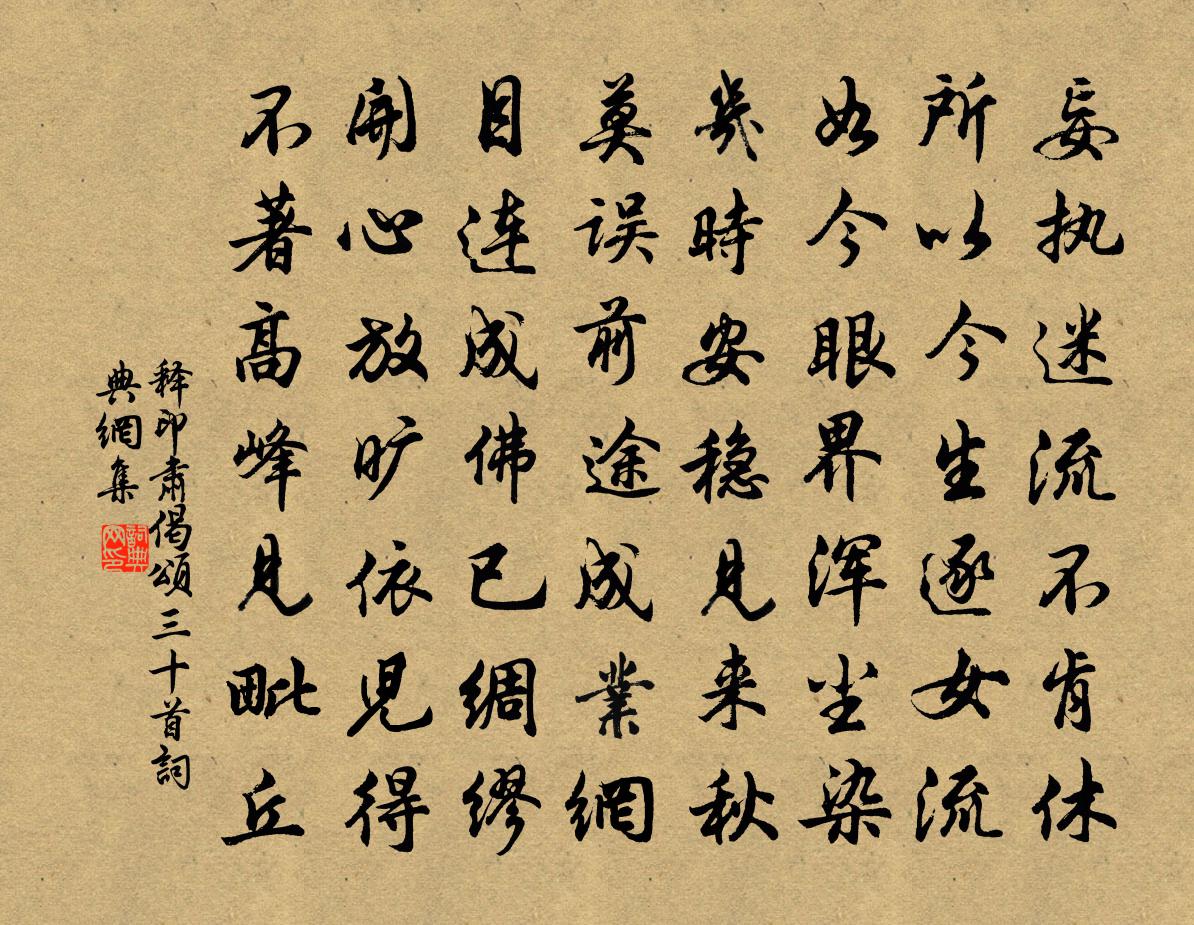 妄执迷流不肯休
所以今生逐女流
如今眼界浑尘染
幾時安稳見来秋
莫误前途成業網
目连成佛已绸缪
開心放旷依児得
不著高峰見毗丘
释印肃偈頌三十首詞
典網集
詞典
网印